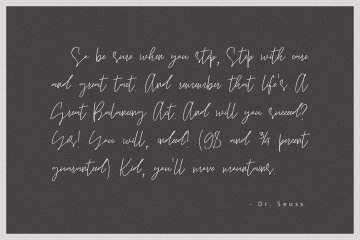 So be sure when you step, Step with care
and great tact. And remember that life's A
Great Balancing Act. And will you succeed?
Yes! You will, indeed! (98 and ¾ percent
guaranteed) Kid, you'll move mountains.
- Dr. Seuss